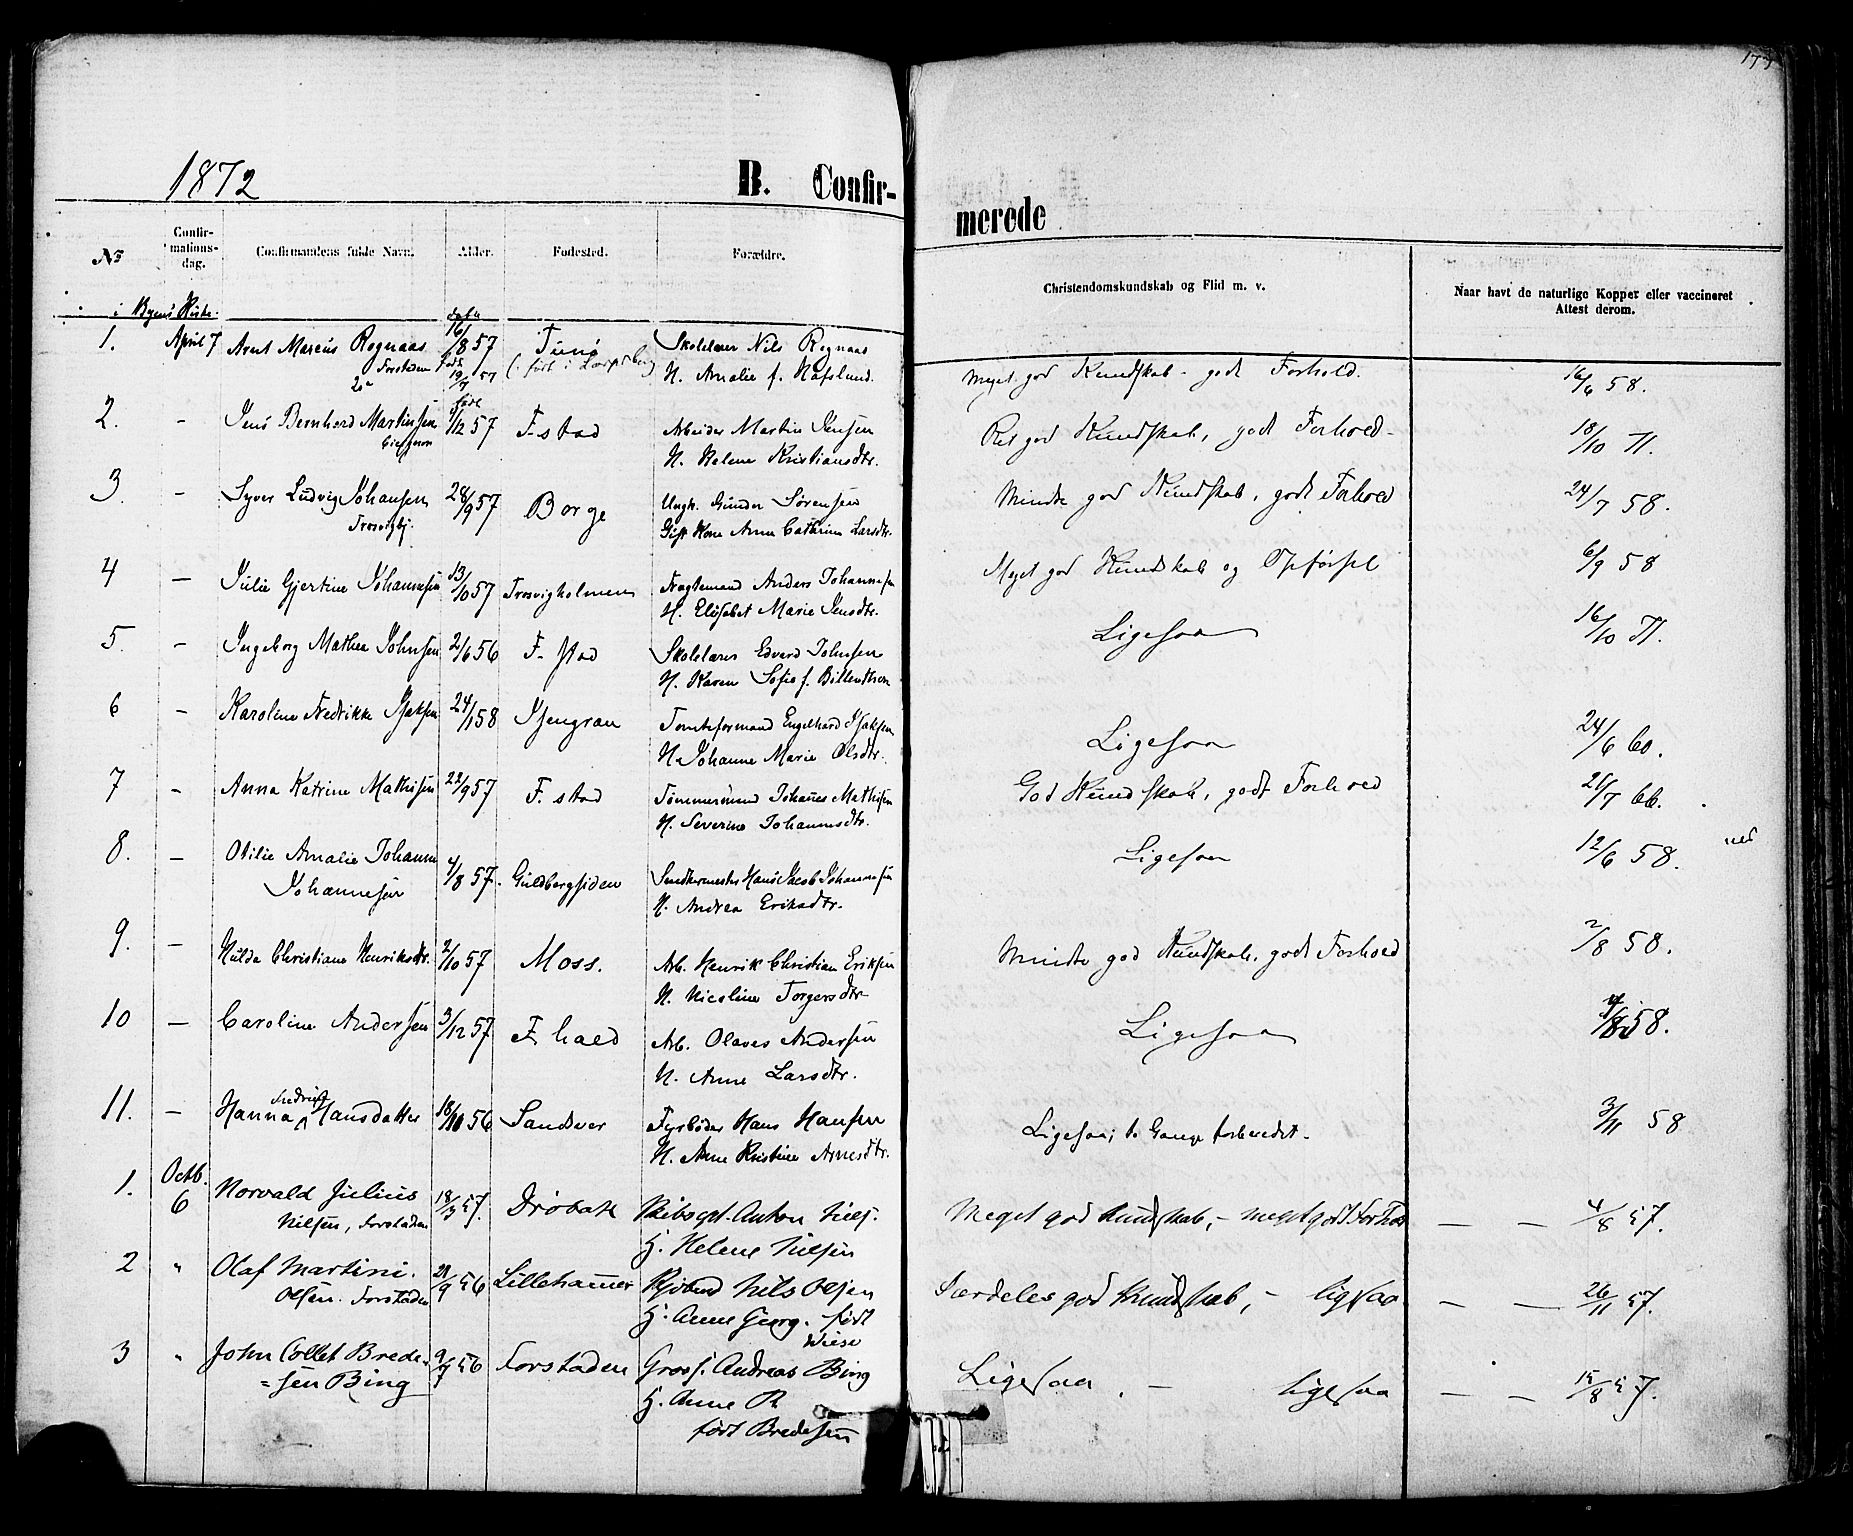 1872
B. Confir-
merede
173
No
Confir-
mations-
dag.
Confirmandens fulde Navn.
Alder.
Fødested.
Forældre.
Christendomskundskab og Flid m. v.
Naar havt de naturlige Kopper eller vaccineret
Attest derom.
i Byens Kirke.
1. April 7 Arent Marcus Rognaas 16/8 57 Tune Skolelærer Nils Rognaas Meget god Kundskab - godt Forhold. 16/6 58.
Forstaden født 19/7 57 (: født i Sarpsborg H. Amalie f. Hafslund.
2. - Jens Bernhard Martinsen 9/12 57 F-stad Arbeider Martin Jensen Ret god Kundskab, godt Forhold - 18/10 71.
H. Helene Kristiansdtr.
3. - Syver Ludvig Johansen 28/9 57 Borge Ungk. Gunder Sørensen Mindre god Kundskab, godt Forhold 24/7 58.
Trosvigbj. Gift Kone Anne Cathrine Larsdtr.
4 - Julie Gjertine Johannesen 13/10 57 Trosvigholmen Fragtemand Anders Johannesen Meget god Kundskab og Opførsel 6/9 58
H. Elisabet Marie Jensdtr.
5. - Ingeborg Mathea Johnsen 2/6 56 F-stad Skolelærer Edvard Johnsen Ligesaa 16/10 71.
H. Karen Sofie f.
6 - Karoline Fredrikke Isaksen 24/1 58 Isengran Tomteformand Engelhard Isaksen Ligesaa 24/6 60.
H. Johanne Marie Olsdtr.
7 - Anna Katrine Mathisen 22/9 57 F. stad Tømmermand Johannes Mathisen God Kundskab, godt Forhold 25/7 66.
H. Severine Johannesdtr.
8. - Otilie Amalie Johanne 4/8 57. Guldbergsiden Hans Jacob Johannesen Ligesaa 12/6 58.
Johannesen H. Andrea Eriksdtr.
9. - Hulda Christiane Henriksdtr. 2/10 57 Moss. Arb. Henrik Christian Eriksen Mindre god Kundskab, godt Forhold 2/8 58.
H. Nicoline Torgersdtr
10 - Caroline Andersen 3/12 57 F. hald Arb. Olaves Andersen Ligesaa 58.
H. Anne Larsdtr.
11. - Hanna Fredrikke Hansdatter 18/10 56 Sandver Fyrbøder Hans Hansen Ligesaa; to Gange forberedet. 3/11 58
H. Anne Kristine Arnesdtr.
1. Octb. 6 Norvald Julius 18/3 57. Drøbak Skibscpt. Anton Niels. Meget god Kundskab, - meget godt Forhol - - 4/8 57.
Nilsen, Forstaden H. Helene Nilsen
2 " Olaf Martini. 21/9 56 Lillehammer Kjøbmd Nils Olsen Særdeles god Kundskab, - ligesaa - - 26/11 57.
Olsen. Forstaden H. Anne Georg. født
Wiese
3 " John Collet Brede- 9/7 56 Forstaden Gross. Andreas Bing Ligesaa. - ligesaa - - 15/8 57.
=sen Bing H. Anne R.
født Bredesen